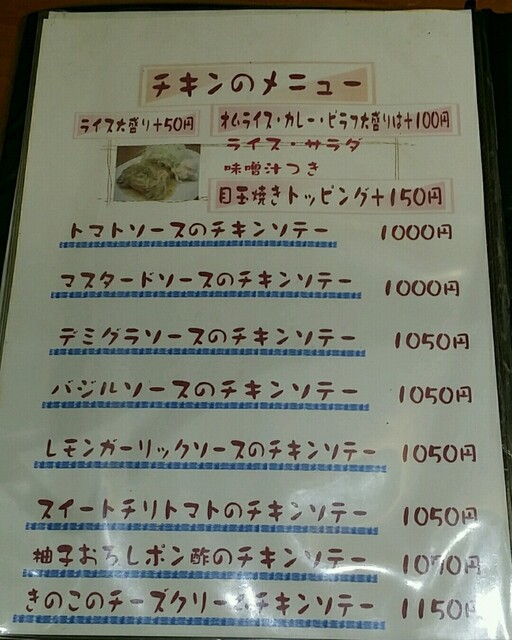 チキンのメニュー
ライス大盛り+50円
オムライス・カレー・ピラフ大盛りは+100円
ライス・サラダ
味噌汁つき
目玉焼きトッピング+150円
トマトソースのチキンソテー 1000円
マスタードソースのチキンソテー 1000円
デミグラソースのチキンソテー 1050円
バジルソースのチキンソテー 1050円
レモンガーリックソースのチキンソテー 1050円
スイートチリトマトのチキンソテー 1050円
柚子おろしポン酢のチキンソテー 円
きのこのチーズクリー チキンソテー 1150円